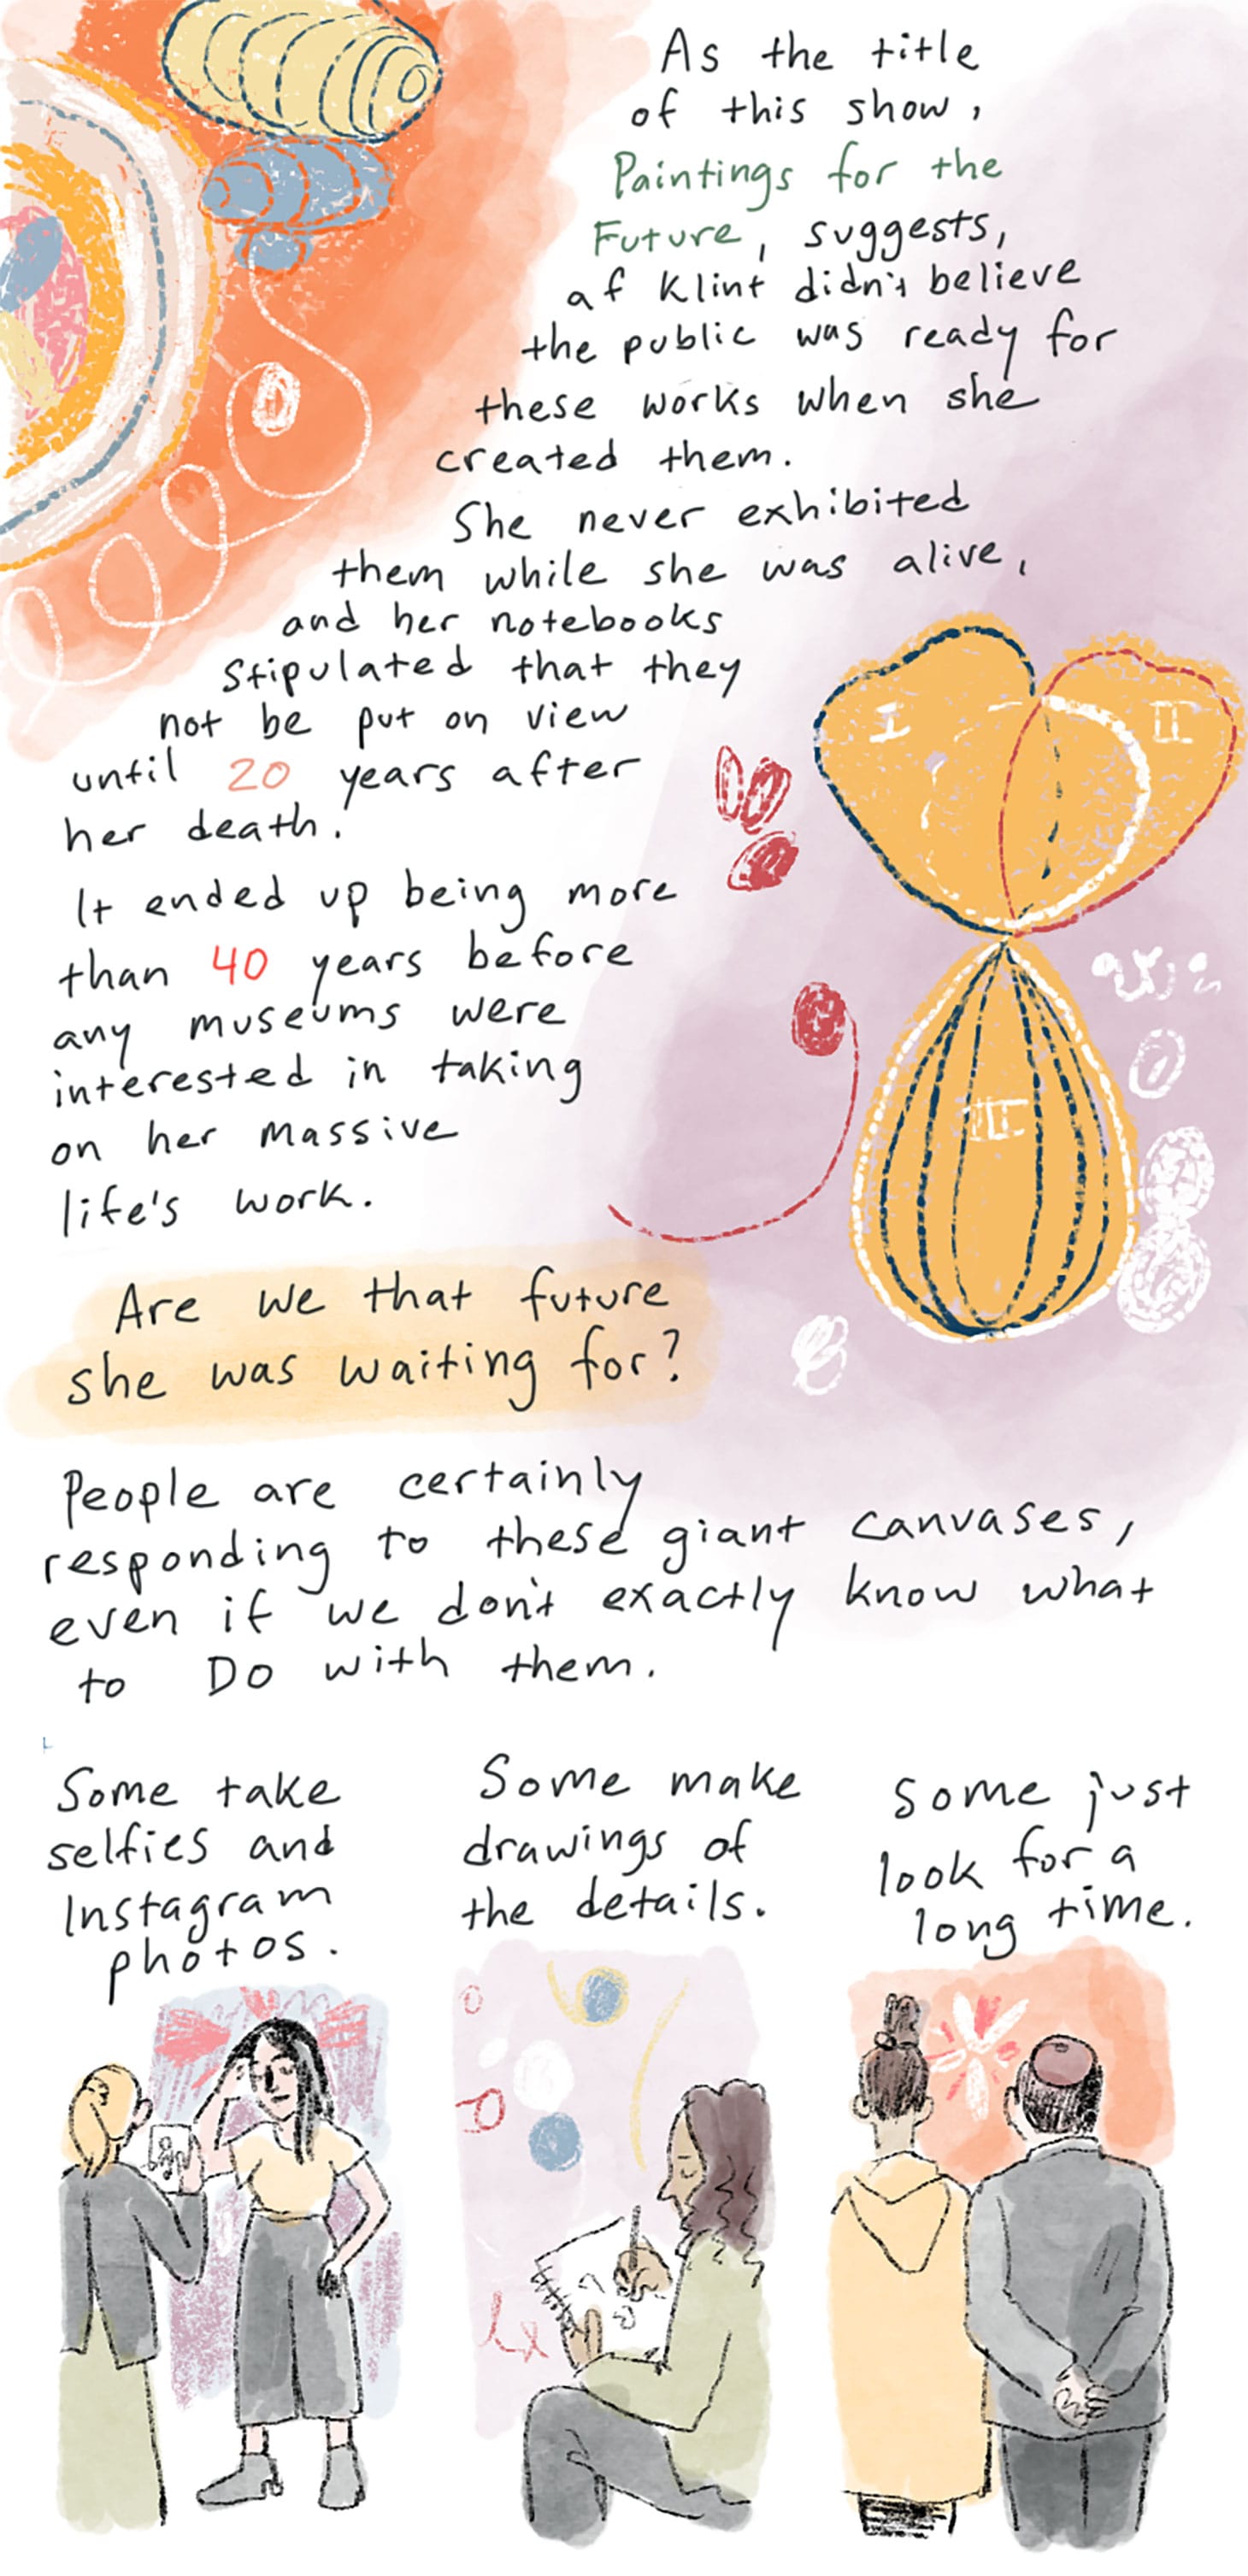 As the title
of this show,
Paintings for the
Future, suggests,
af Klint didn't believe
the public was ready for
these works when she
created them.
She never exhibited
them while she was alive,
and her notebooks
stipulated that they
not be put on view
until 20 years after
her death.
It ended up being more
than 40 years before
any museums were
interested in taking
on her massive
life's work.
I
II
III
Are we that future
she was waiting for?
People are certainly
responding to these giant canvases,
even if we don't exactly know what
to DO with them.
Some take
selfies and
Instagram
photos.
Some make
drawings of
the details.
Some just
look for a
long time.